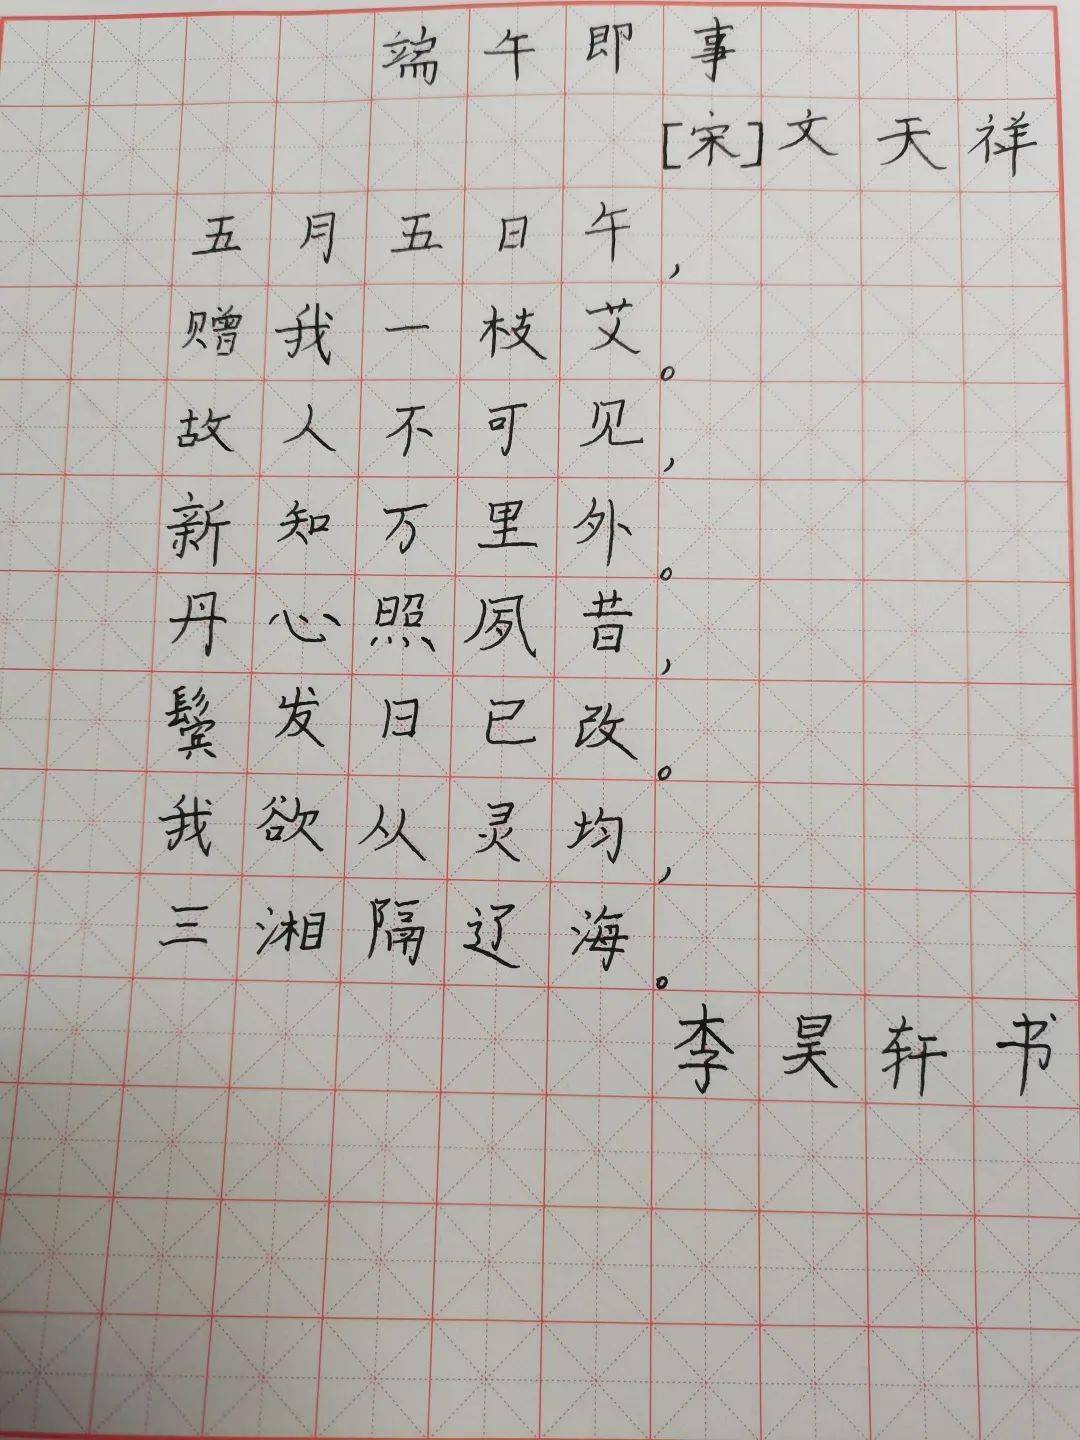 端午即事
[宋]文天祥
五月五日午，
赠我一枝艾。
故人不可见，
新知万里外。
丹心照夙昔，
鬓发日已改。
我欲从灵均，
三湘隔辽海。
李昊轩书